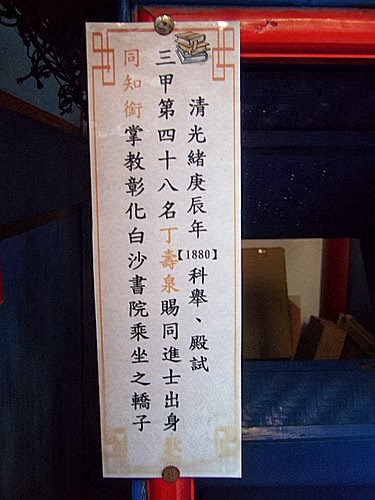 清光緒庚辰年【1880】科舉、殿試
三甲第四十八名丁壽泉賜同進士出身
同知銜掌教彰化白沙書院乘坐之轎子